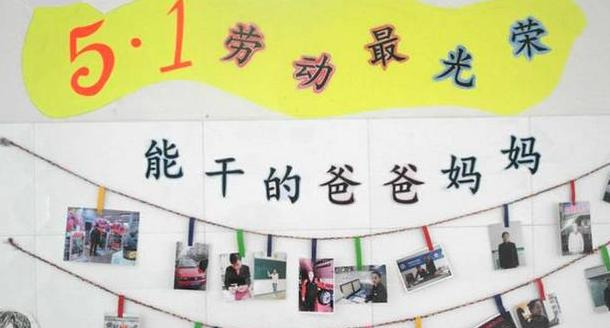 5·1劳动最光荣
能干的爸爸妈妈